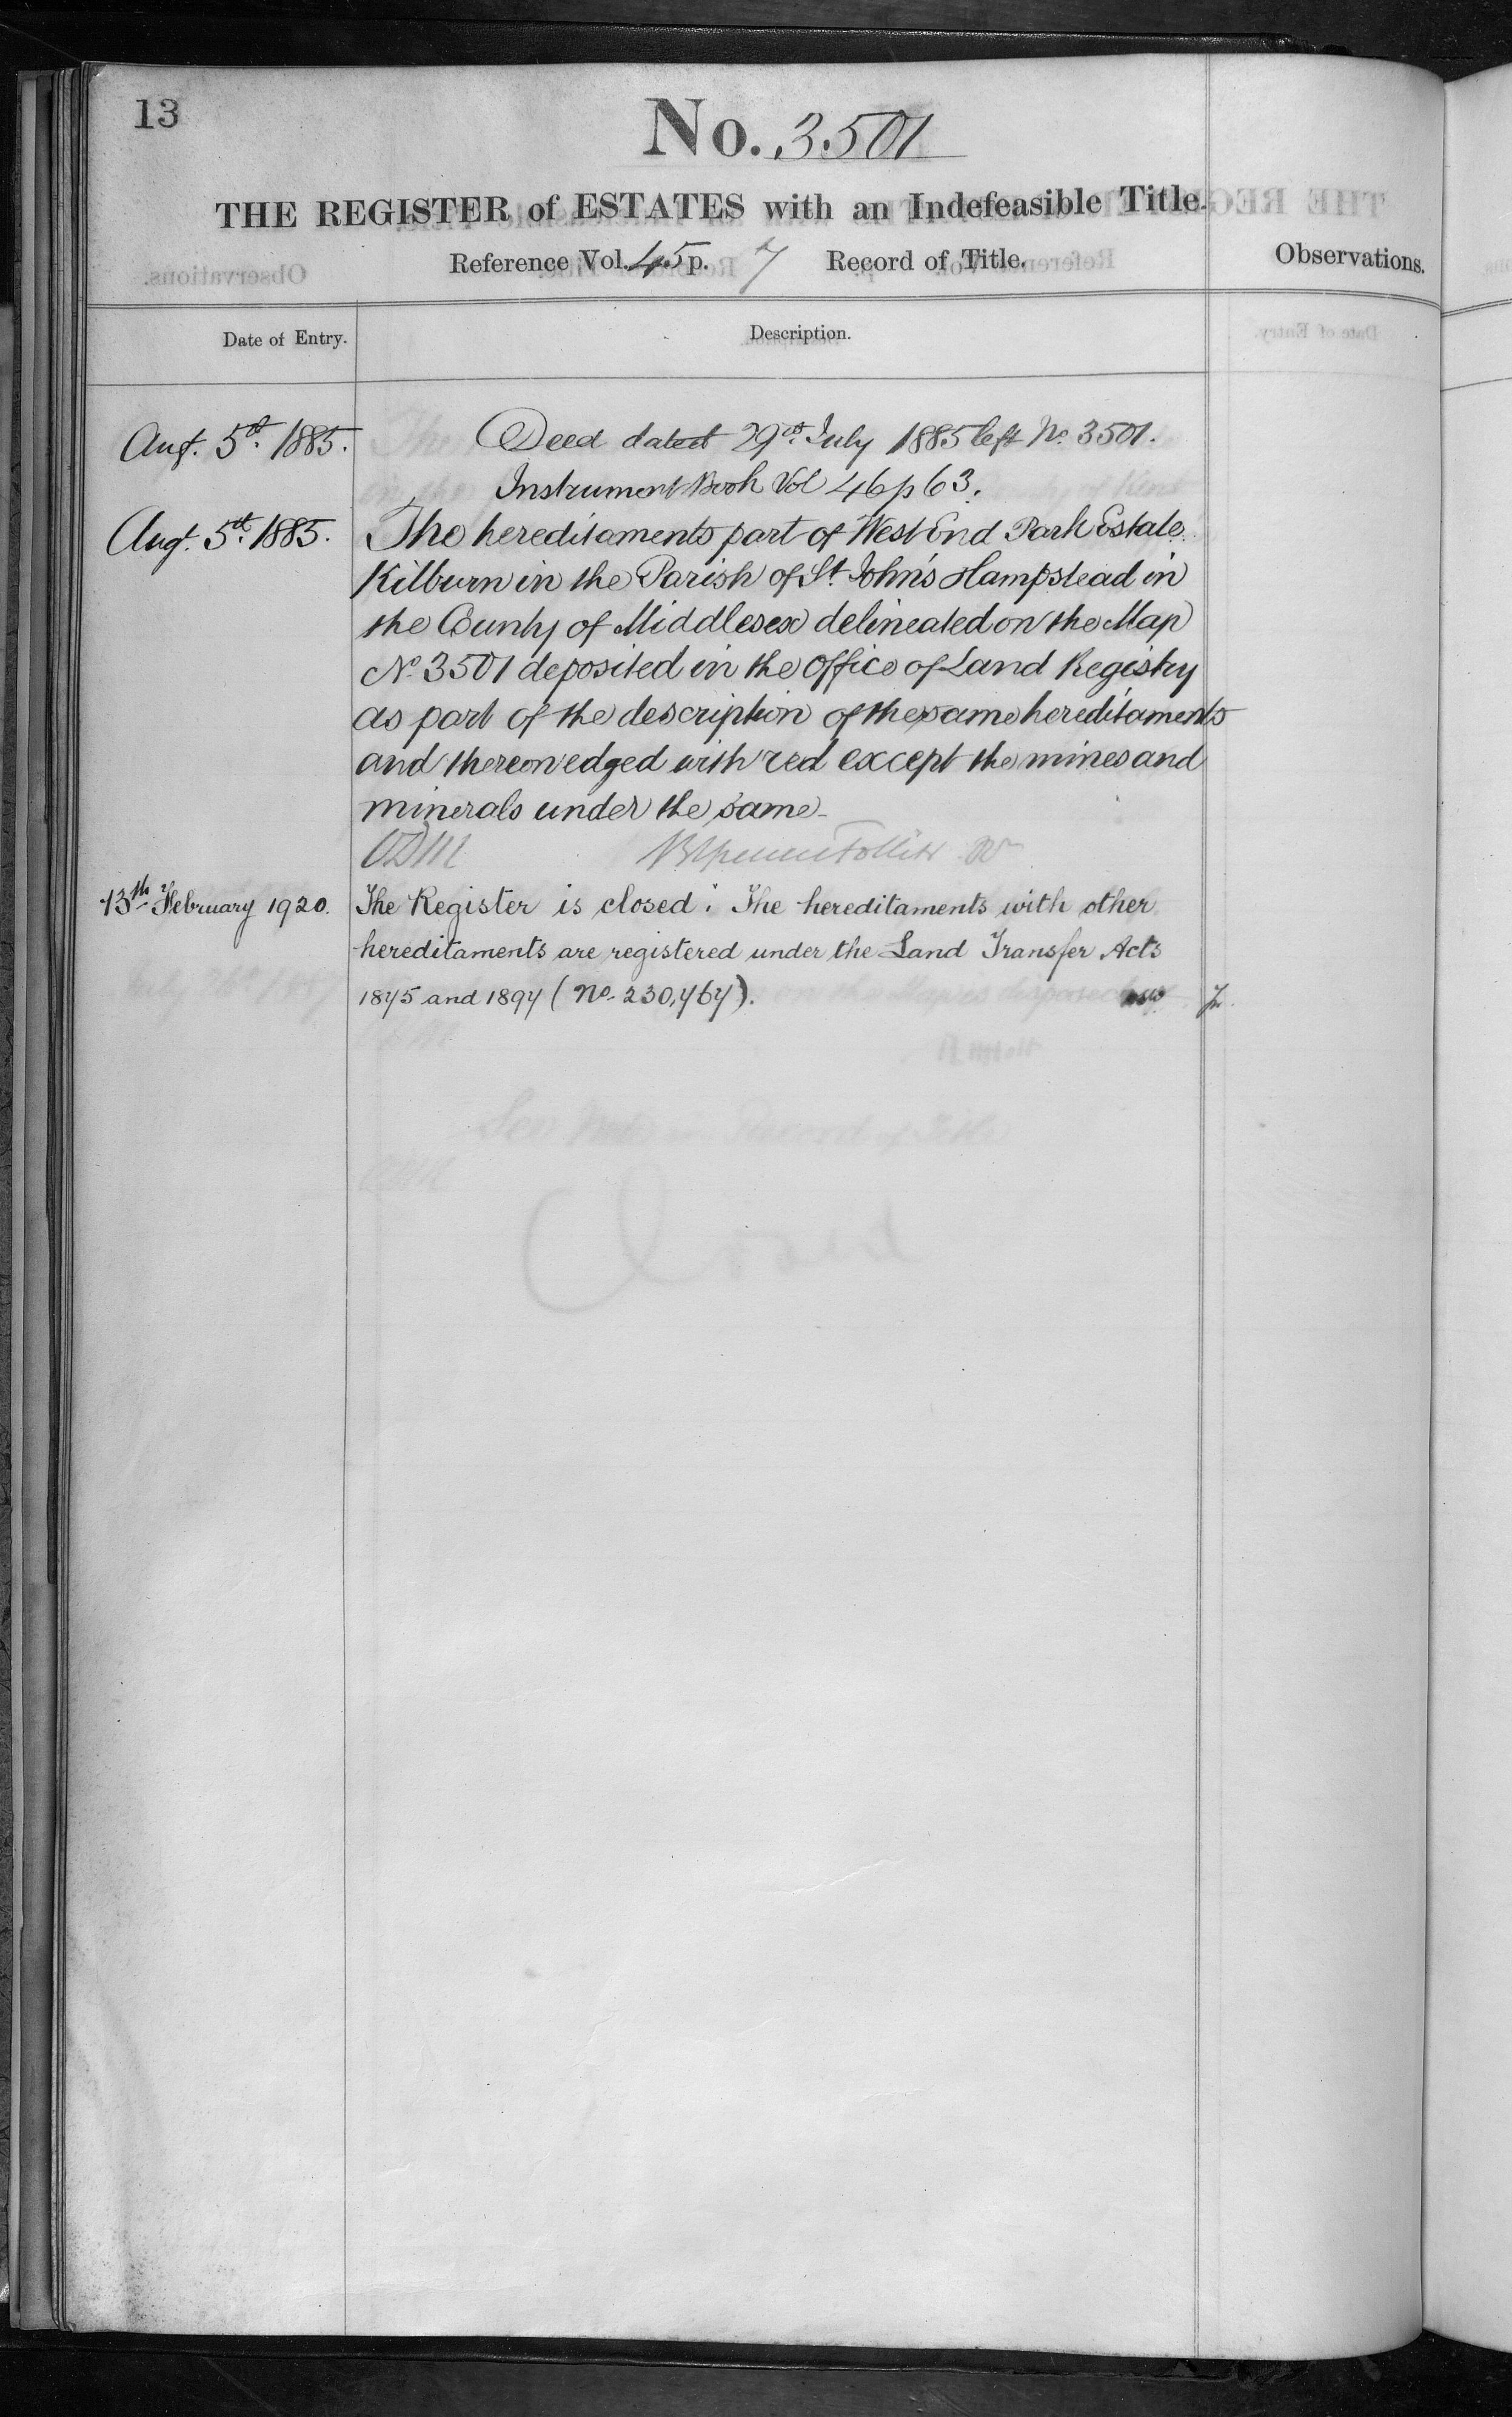 13
No. 3501
THE REGISTER of ESTATES with an Indefeasible Title.
Reference Vol. 45 p. 7 Record of Title.
Observations.
Date of Entry.
Description.
Augt. 5th. 1885.
Deed dated 29th. July 1885 left No. 3501.
Instrument Book Vol 46 p 63.
Augt. 5th. 1885.
The hereditaments part of West End Park Estate
Kilburn in the Parish of St. John's Hampstead in
the County of Middlesex delineated on the Map
No. 3501 deposited in the Office of Land Registry
as part of the description of the same hereditaments
and thereon edged with red except the mines and
minerals under the same
13th February 1920.
The Register is closed. The hereditaments with other
hereditaments are registered under the Land Transfer Acts
1875 and 1897 (No. 230,767).